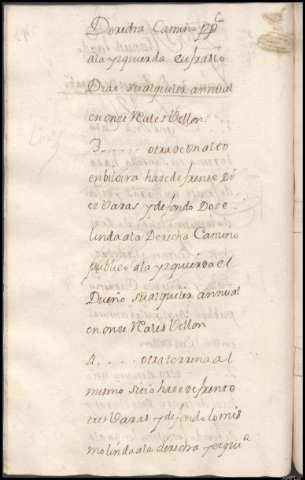 Derecha Camino pp.co
ala yzquierda eusrasio
Dias sualquiler annual
en once Reales Vellon
3..... otra de un alto
en bilvira hace de frente Di
ez Varas y de fondo Doze
linda ala Derecha Camino
publico ala yzquierda el
Dueño sualquiler annual
en onze Reales Vellon
4..... otra terrena al
mesmo sitio hace de frente
tres Varas y de fondo lo mis
mo linda ala derecha yzqui.a